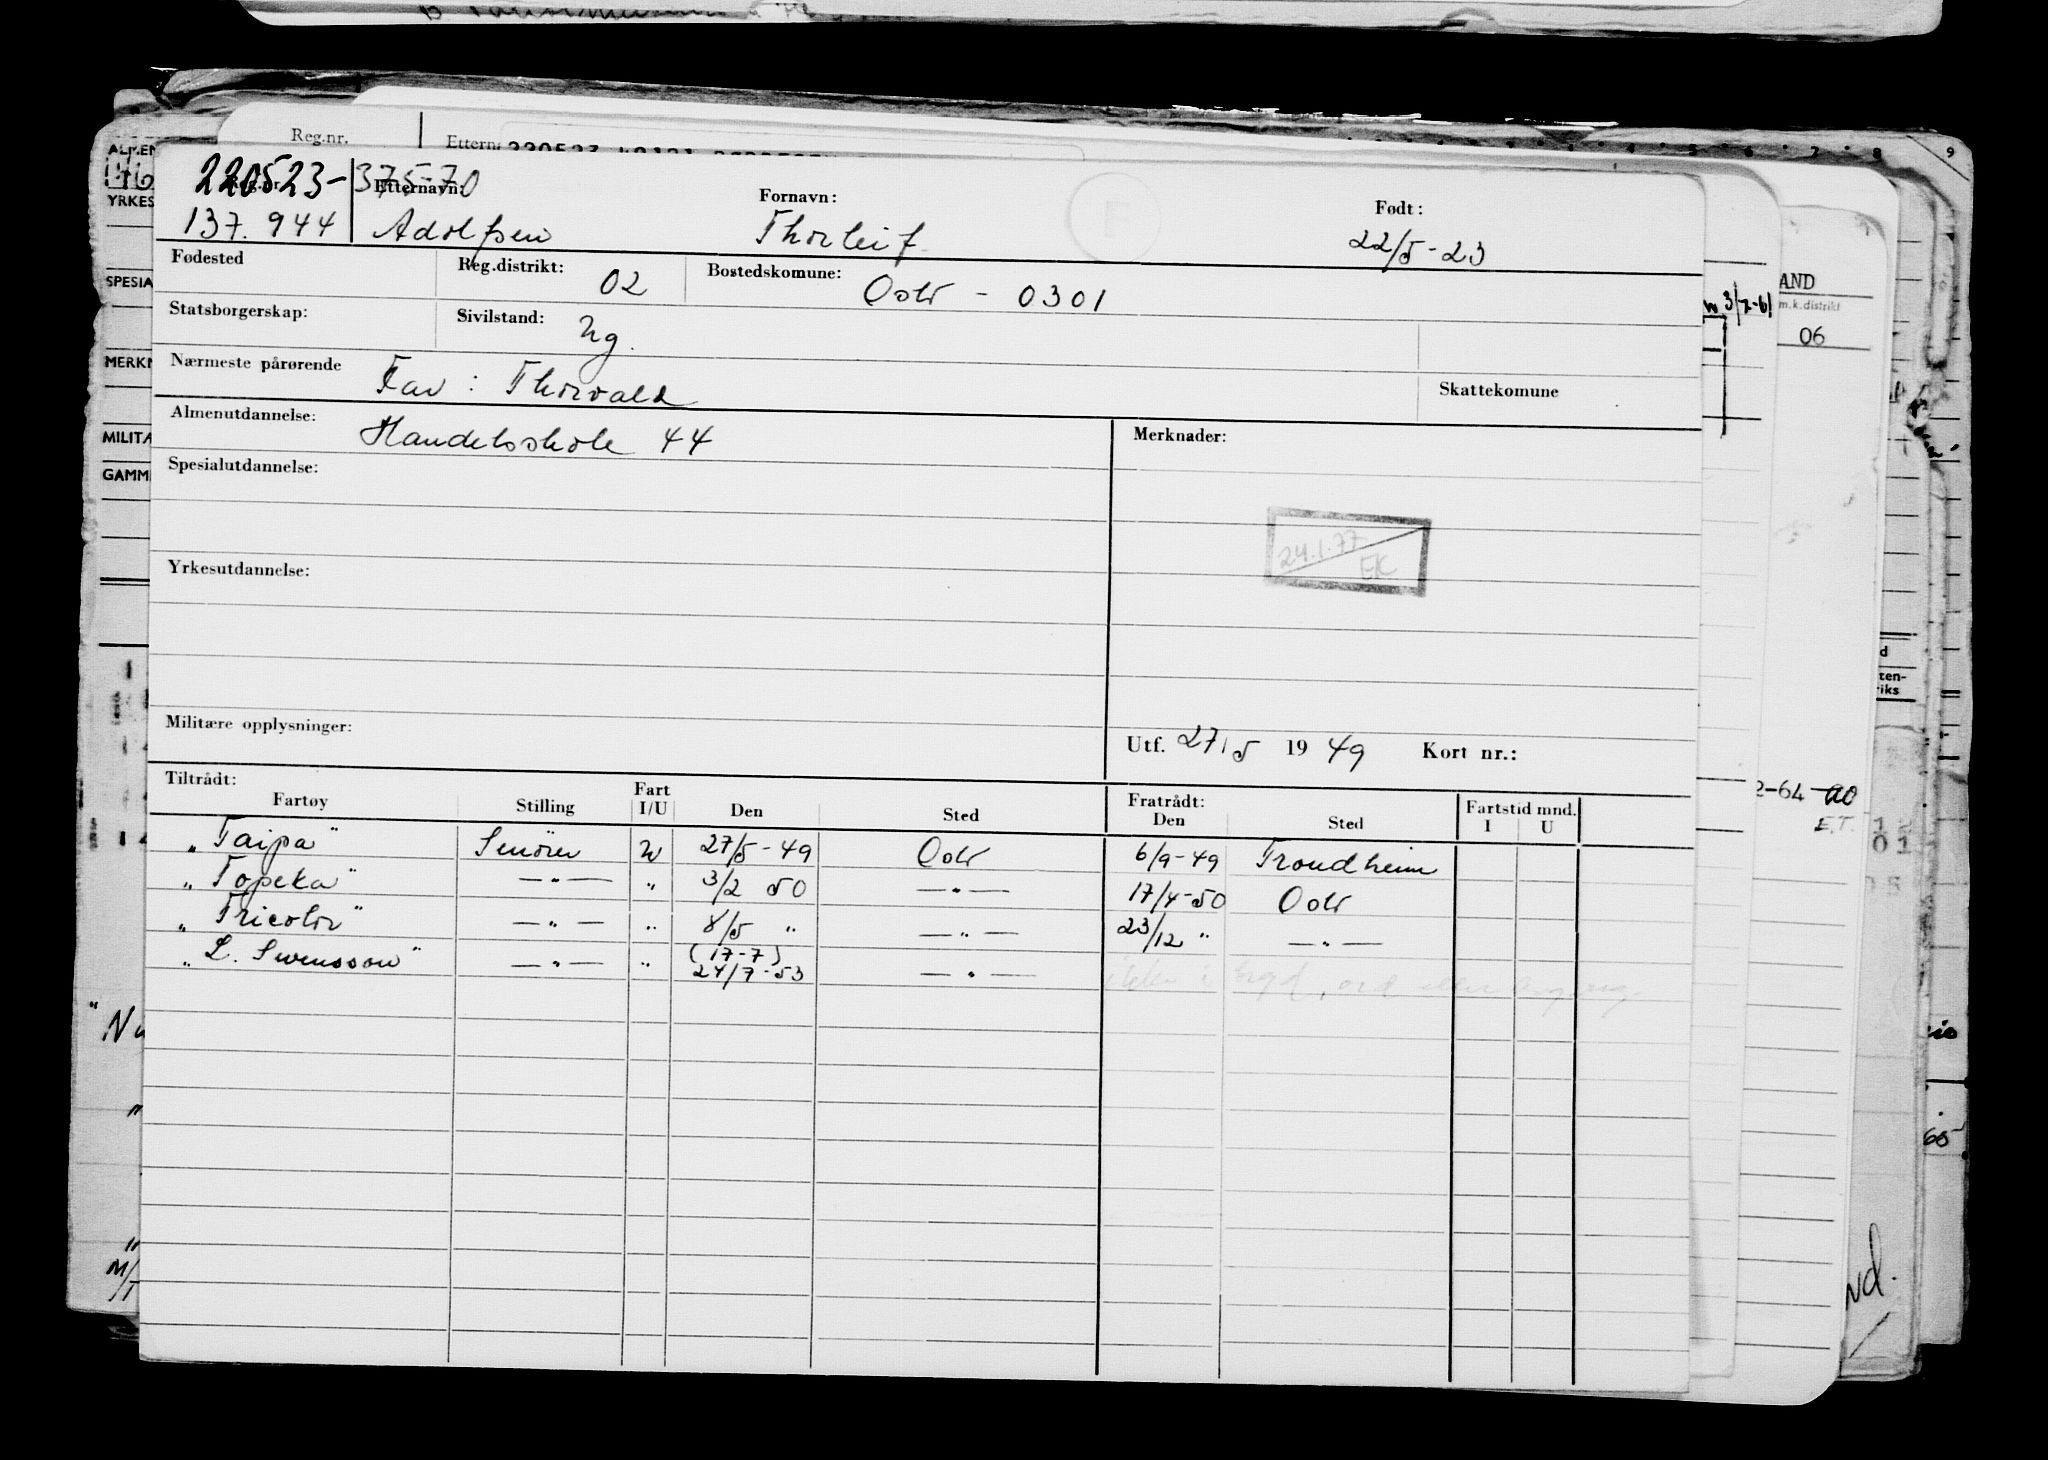 Reg.nr. Ettern
220523-37570
Etternavn: Fornavn: Født:
137.944 Adolfsen Thorleif 22/5-23
Fødested Reg.distrikt: 02 Bostedskomune: Oslo - 0301
Statsborgerskap: Sivilstand: Ug.
Nærmeste pårørende Far: Thorvald Skattekomune
Almenutdannelse: Handelsskole 44 Merknader:
Spesialutdannelse:
24.1.77
EK
Yrkesutdannelse:
Militære opplysninger:
Utf. 27/5 1949 Kort nr.:
Tiltrådt: Fratrådt: Fartstid mnd.
Fartøy Stilling Fart I/U Den Sted Den Sted I U
"Taipa" U 27/5-49 Oslo 6/9-49 Trondheim
"Topeka" —"— " 3/2 50 —"— 17/4-50 Oslo
"Tricolor" —"— " 8/5 " —"— 23/12 " —"—
"L. Swensson" —"— " (17-7) 24/7-53 —"—
ALMEN
YRKES
SPESIA
MERKN
MILITÆ
GAMM
AND
m.k.distrikt
06
3/2-61
2-64
E.T.
M/T